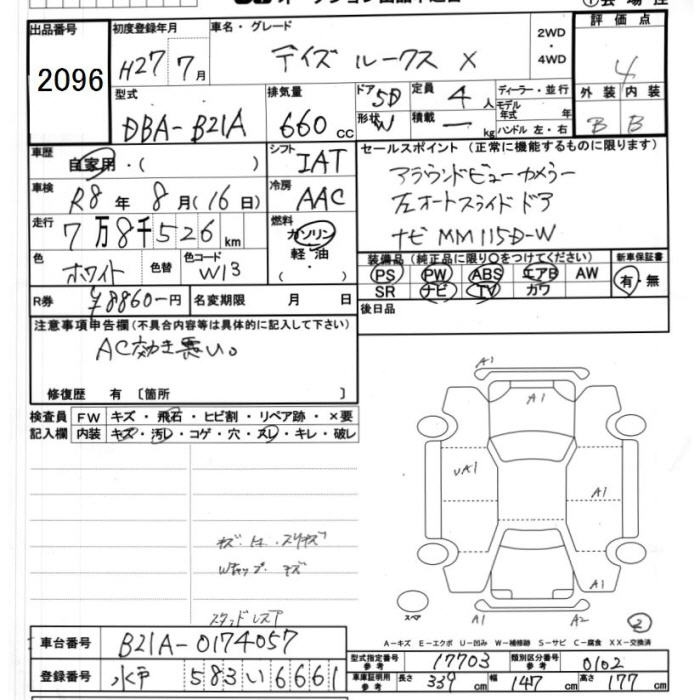 出品番号 初度登録年月 車名・グレード 2WD・4WD 評価点
2096 H27 7月 デイズ ルークス X 4
型式 排気量 ドア 5D 定員 4人 ディーラー・並行 外装 内装
DBA-B21A 660cc 形状 W 積載 ー kg モデル年式 年 ハンドル 左・右 B B
車歴 自家用・( ) シフト IAT セールスポイント (正常に機能するものに限ります)
車検 R8年 8月(16日) 冷房 AAC アラウンドビューカメラー
左オートスライドドア
走行 7万8千526km 燃料 ガソリン 軽・油 ( ・ ) ナビ MM115D-W
色 ホワイト 色替 色コード W13 装備品(純正品に限り○をつけてください) 新車保証書
PS PW ABS エアB AW 有・無
R券 ¥8860-円 名変期限 月 日 SR ナビ TV カワ
注意事項申告欄(不具合内容等は具体的に記入して下さい) 後日品
AC効き悪い。
修復歴 有 〔箇所 〕
検査員 FW キズ・飛石・ヒビ割・リペア跡・×要
記入欄 内装 キズ・汚レ・コゲ・穴・スレ・キレ・破レ
A1
A1
UA1
A1
A1
スペア A1 A2 2
A-キズ E-エクボ U-凹み W-補修跡 S-サビ C-腐食 XX-交換済
車台番号 B21A-0174057 型式指定番号 参考 17703 類別区分番号 参考 0102
登録番号 水戸 583 い 6661 車庫証明用 参考 長さ 339cm 幅 147cm 高さ 177cm